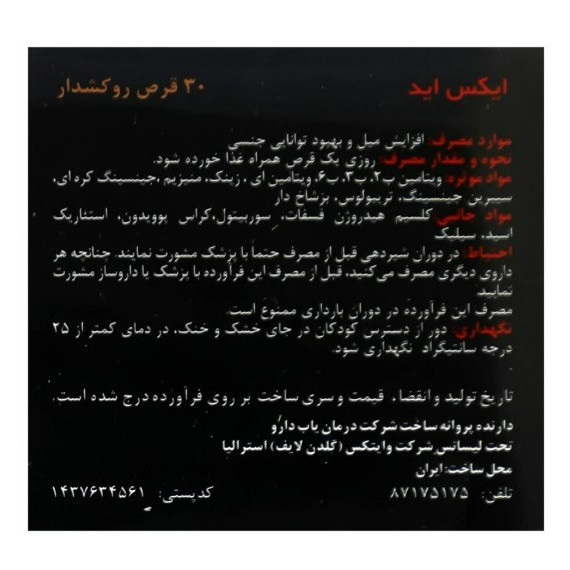 ایکس اید
۳۰ قرص روکشدار
موارد مصرف: افزایش میل و بهبود توانایی جنسی
نحوه و مقدار مصرف: روزی یک قرص همراه غذا خورده شود.
مواد موثره: ویتامین ب۲، ب۳، ب۶، ویتامین ای ، زینک، منیزیم ،جینسینگ کره ای،
سیبرین جینسینگ، تریبولوس، بزشاخ دار
مواد جانبی: کلسیم هیدروژن فسفات، سوربیتول،کراس پوویدون، استئاریک
اسید، سیلیک
احتیاط: در دوران شیردهی قبل از مصرف حتماً با پزشک مشورت نمایند. چنانچه هر
داروی دیگری مصرف می‌کنید، قبل از مصرف این فرآورده با پزشک یا داروساز مشورت
نمایید.
مصرف این فرآورده در دوران بارداری ممنوع است.
نگهداری: دور از دسترس کودکان در جای خشک و خنک، در دمای کمتر از ۲۵
درجه سانتیگراد نگهداری شود.
تاریخ تولید و انقضا، قیمت و سری ساخت بر روی فرآورده درج شده است.
دارنده پروانه ساخت شرکت درمان یاب دارو
تحت لیسانس شرکت وایتکس (گلدن لایف) استرالیا
محل ساخت: ایران
تلفن: ۸۷۱۷۵۱۷۵
کدپستی: ۱۴۳۷۶۳۴۵۶۱